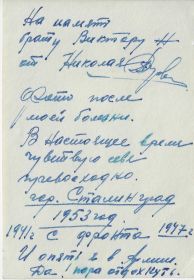 На память
брату Виктору
от Николая
Фото после
моей болезни.
В настоящее время
чувствую себя
превосходно.
гор. Сталинград
1953 год
1941г с фронта 1947г
И опять я в Армии.
Да пора отдохнуть.